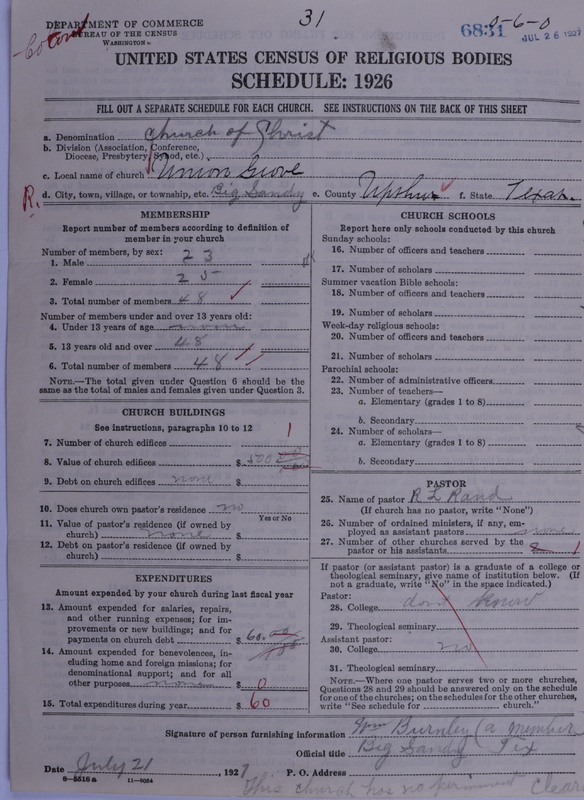 31
DEPARTMENT OF COMMERCE
BUREAU OF THE CENSUS
WASHINGTON
Colored
6831
0-6-0
JUL 26 1927
UNITED STATES CENSUS OF RELIGIOUS BODIES
SCHEDULE: 1926
FILL OUT A SEPARATE SCHEDULE FOR EACH CHURCH. SEE INSTRUCTIONS ON THE BACK OF THIS SHEET
a. Denomination Church of Christ
b. Division (Association, Conference,
Diocese, Presbytery, Synod, etc.)
c. Local name of church Union Grove
R. d. City, town, village, or township, etc. Big Sandy e. County Upshur f. State Texas
MEMBERSHIP
Report number of members according to definition of
member in your church
Number of members, by sex:
1. Male 23
2. Female 25
3. Total number of members 48
Number of members under and over 13 years old:
4. Under 13 years of age none
5. 13 years old and over 48
6. Total number of members 48
NOTE.—The total given under Question 6 should be the
same as the total of males and females given under Question 3.
CHURCH BUILDINGS
See instructions, paragraphs 10 to 12
7. Number of church edifices 1
8. Value of church edifices $ 500
9. Debt on church edifices none $
10. Does church own pastor's residence no
Yes or No
11. Value of pastor's residence (if owned by
church) none $
12. Debt on pastor's residence (if owned by
church) $
EXPENDITURES
Amount expended by your church during last fiscal year
13. Amount expended for salaries, repairs,
and other running expenses; for im-
provements or new buildings; and for
payments on church debt $ 60.00
14. Amount expended for benevolences, in-
cluding home and foreign missions; for
denominational support; and for all
other purposes none $ 0
15. Total expenditures during year $ 60
CHURCH SCHOOLS
Report here only schools conducted by this church
Sunday schools:
16. Number of officers and teachers
17. Number of scholars
Summer vacation Bible schools:
18. Number of officers and teachers
19. Number of scholars
Week-day religious schools:
20. Number of officers and teachers
21. Number of scholars
Parochial schools:
22. Number of administrative officers
23. Number of teachers—
a. Elementary (grades 1 to 8)
b. Secondary
24. Number of scholars—
a. Elementary (grades 1 to 8)
b. Secondary
PASTOR
25. Name of pastor R L Rand
(If church has no pastor, write "None")
26. Number of ordained ministers, if any, em-
ployed as assistant pastors none
27. Number of other churches served by the
pastor or his assistants 2 1
If pastor (or assistant pastor) is a graduate of a college or
theological seminary, give name of institution below. (If
not a graduate, write "No" in the space indicated.)
Pastor:
28. College dont know
29. Theological seminary
Assistant pastor:
30. College no
31. Theological seminary
NOTE.—Where one pastor serves two or more churches,
Questions 28 and 29 should be answered only on the schedule
for one of the churches; on the schedules for the other churches,
write "See schedule for church."
Signature of person furnishing information Wm Burnley (a member
Official title Big Sandy Tex
Date July 21, 1927 P. O. Address
8-5518a 11-9084
This church has no